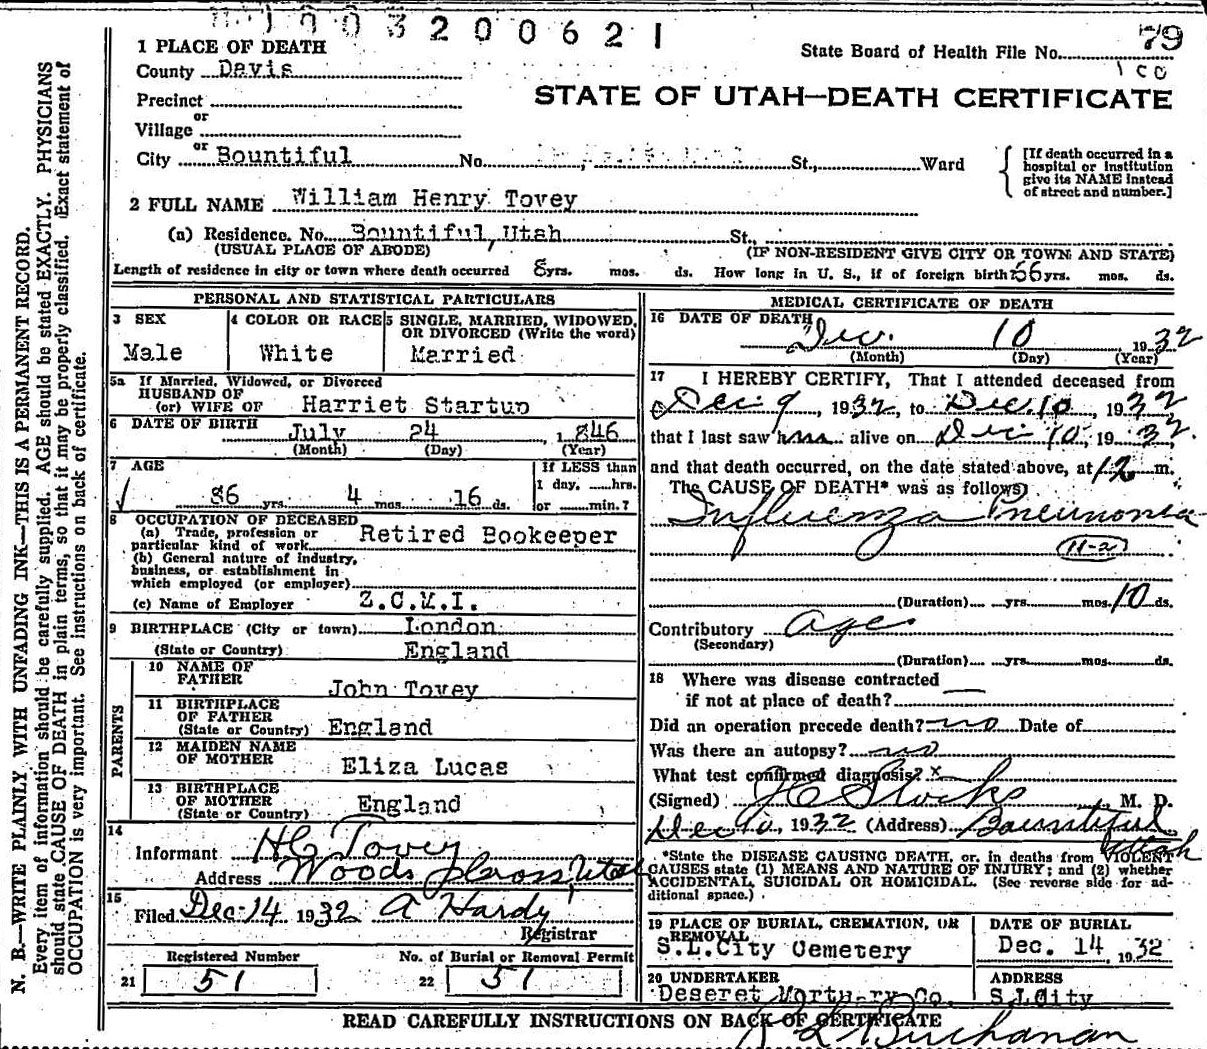 1003200621
79
State Board of Health File No.
100
1 PLACE OF DEATH
County Davis
STATE OF UTAH—DEATH CERTIFICATE
Precinct
or
Village
or
City Bountiful No. St., Ward
[If death occurred in a hospital or institution give its NAME instead of street and number.]
2 FULL NAME William Henry Tovey
(a) Residence. No. Bountiful, Utah St.,
(USUAL PLACE OF ABODE) (IF NON-RESIDENT GIVE CITY OR TOWN AND STATE)
Length of residence in city or town where death occurred 8 yrs. mos. ds. How long in U. S., if of foreign birth? 66 yrs. mos. ds.
PERSONAL AND STATISTICAL PARTICULARS
3 SEX
Male
4 COLOR OR RACE
White
5 SINGLE, MARRIED, WIDOWED, OR DIVORCED (Write the word)
Married
5a If Married, Widowed, or Divorced
HUSBAND OF
(or) WIFE OF Harriet Startup
6 DATE OF BIRTH July 24, 1846
(Month) (Day) (Year)
7 AGE
86 yrs. 4 mos. 16 ds.
If LESS than
1 day, hrs.
or min.?
8 OCCUPATION OF DECEASED
(a) Trade, profession or
particular kind of work Retired Bookeeper
(b) General nature of industry,
business, or establishment in
which employed (or employer)
(c) Name of Employer Z.C.M.I.
9 BIRTHPLACE (City or town) London
(State or Country) England
PARENTS
10 NAME OF
FATHER John Tovey
11 BIRTHPLACE
OF FATHER
(State or Country) England
12 MAIDEN NAME
OF MOTHER Eliza Lucas
13 BIRTHPLACE
OF MOTHER
(State or Country) England
14
Informant H C Tovey
Address Woods Cross, Utah
15
Filed Dec-14 1932 A Hardy
Registrar
Registered Number
21 51
No. of Burial or Removal Permit
22 51
MEDICAL CERTIFICATE OF DEATH
16 DATE OF DEATH
Dec. 10 1932
(Month) (Day) (Year)
17 I HEREBY CERTIFY, That I attended deceased from
Dec. 9, 1932, to Dec. 10, 1932
that I last saw him alive on Dec 10, 1932.
and that death occurred, on the date stated above, at 12 m.
The CAUSE OF DEATH* was as follows
Influenza Pneumonia
11-2
(Duration) yrs. mos. 10 ds.
Contributory Age
(Secondary)
(Duration) yrs. mos. ds.
18 Where was disease contracted
if not at place of death?
Did an operation precede death? no Date of
Was there an autopsy? no
What test confirmed diagnosis? x
(Signed) J C Stocks M. D.
Dec 10, 1932 (Address) Bountiful
Utah
*State the DISEASE CAUSING DEATH, or, in deaths from VIOLENT
CAUSES state (1) MEANS AND NATURE OF INJURY; and (2) whether
ACCIDENTAL, SUICIDAL OR HOMICIDAL. (See reverse side for ad-
ditional space.)
19 PLACE OF BURIAL, CREMATION, OR
REMOVAL
S.L.City Cemetery
DATE OF BURIAL
Dec. 14, 1932
20 UNDERTAKER
Deseret Mortuary Co.
ADDRESS
S L City
READ CAREFULLY INSTRUCTIONS ON BACK OF CERTIFICATE
L Buchanan
N. B.—WRITE PLAINLY WITH UNFADING INK—THIS IS A PERMANENT RECORD.
Every item of information should be carefully supplied. AGE should be stated EXACTLY. PHYSICIANS
should state CAUSE OF DEATH in plain terms, so that it may be properly classified. Exact statement of
OCCUPATION is very important. See instructions on back of certificate.